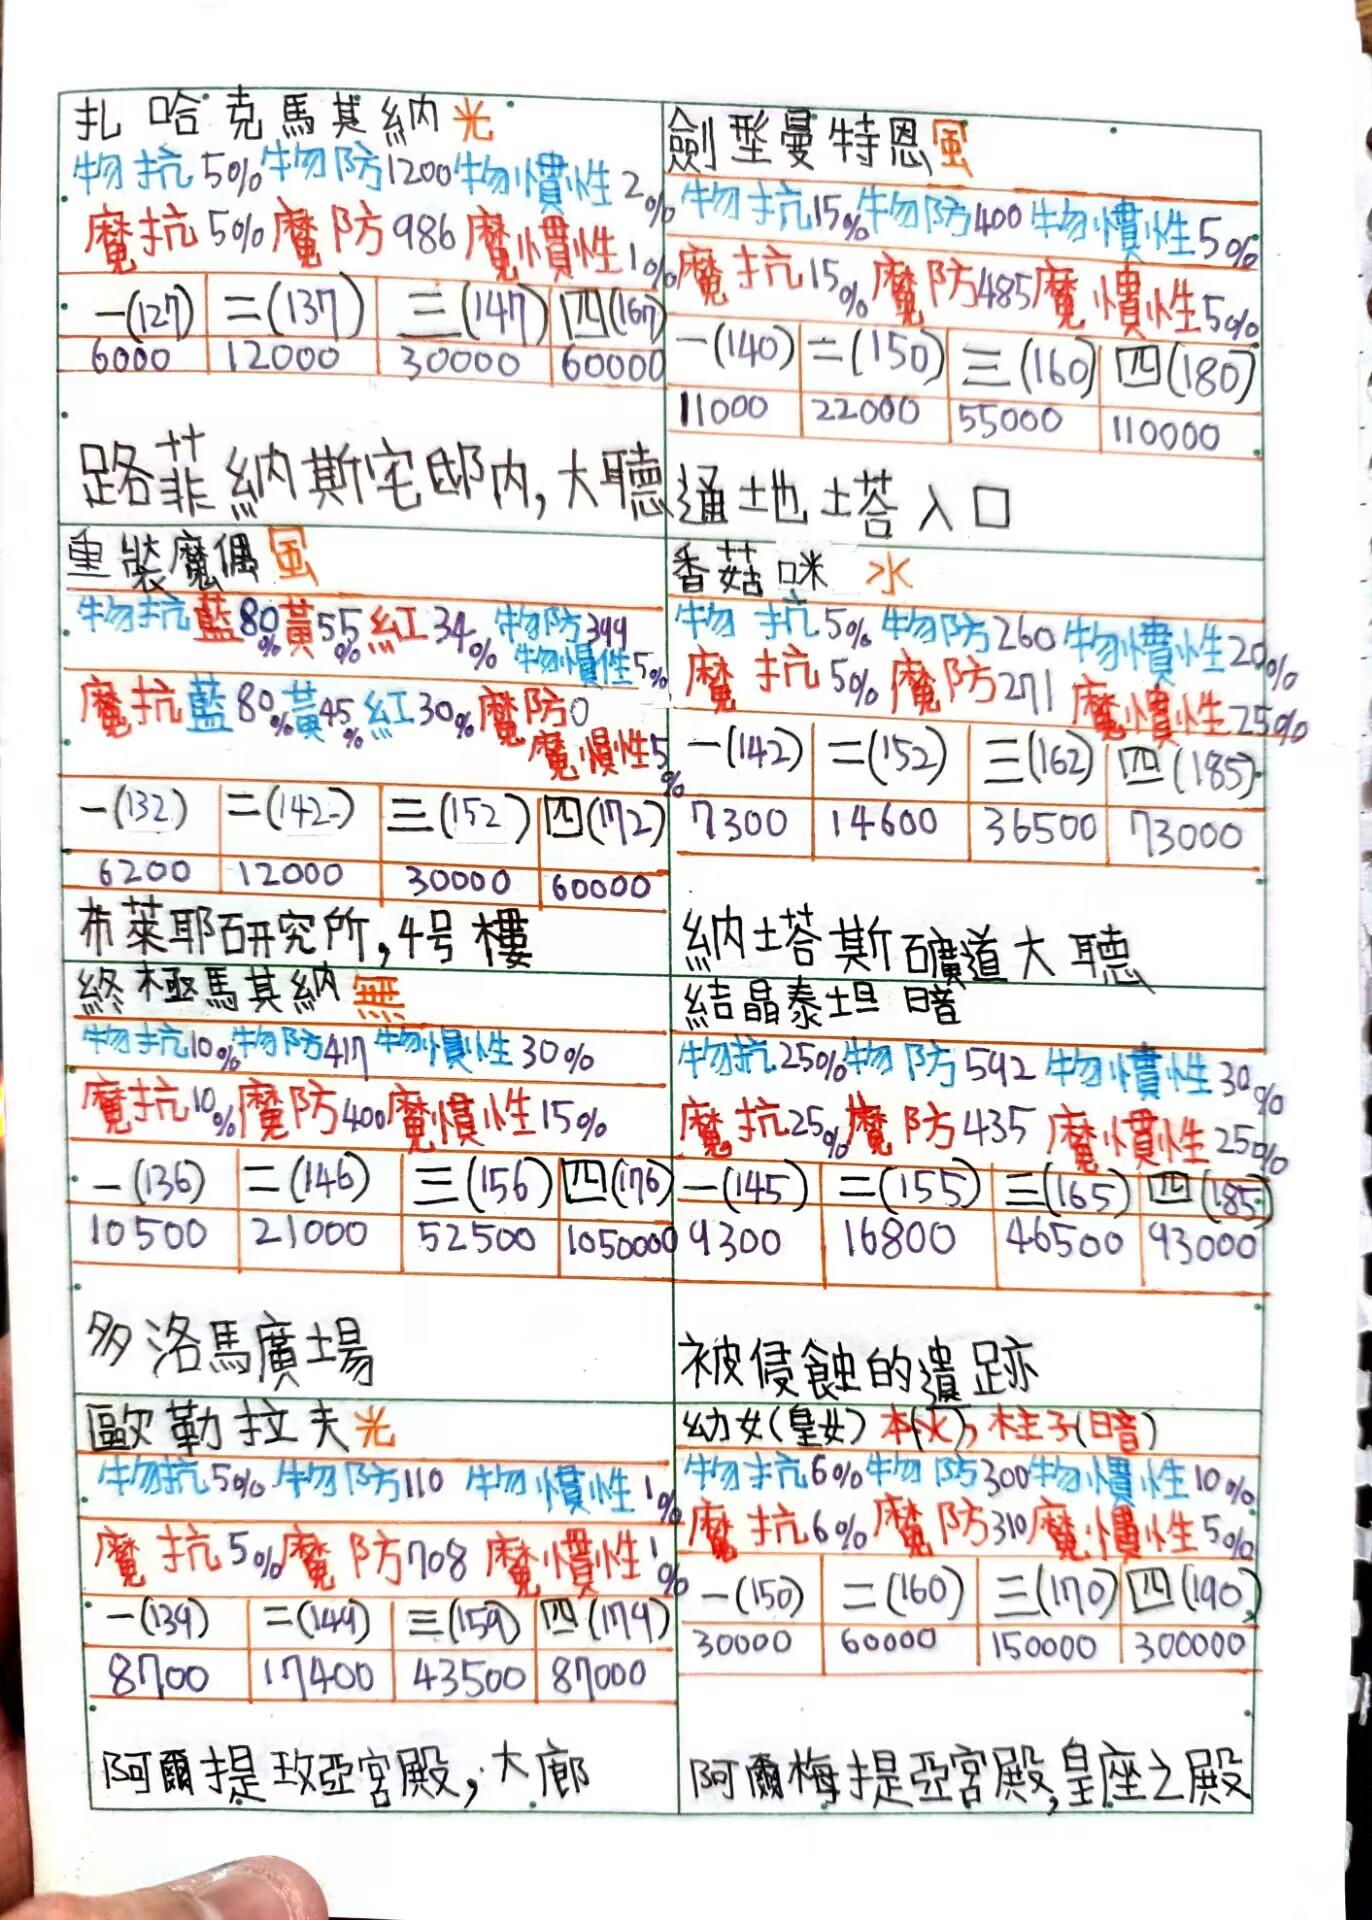 扎哈克馬其納光
物抗5%物防1200物慣性2%
魔抗5%魔防986魔慣性1%
一(127) 二(137) 三(147) 四(167)
6000 12000 30000 60000
路菲納斯宅邸內,大聽
劍型曼特恩風
物抗15%物防400物慣性5%
魔抗15%魔防485魔慣性5%
一(140) 二(150) 三(160) 四(180)
11000 22000 55000 110000
通地土塔入口
重裝魔偶風
物抗藍80%黃55%紅34%物防399
物慣性5%
魔抗藍80%黃45%紅30%魔防0
魔慣性5%
一(132) 二(142) 三(152) 四(172)
6200 12000 30000 60000
布萊耶研究所,4号樓
香菇咪 水
物抗5%物防260物慣性20%
魔抗5%魔防271魔慣性25%
一(142) 二(152) 三(162) 四(185)
7300 14600 36500 73000
納塔斯礦道大聽
終極馬其納無
物抗10%物防417物慣性30%
魔抗10%魔防400魔慣性15%
一(136) 二(146) 三(156) 四(176)
10500 21000 52500 1050000
多洛馬廣場
結晶泰坦 暗
物抗25%物防592物慣性30%
魔抗25%魔防435魔慣性25%
一(145) 二(155) 三(165) 四(185)
9300 16800 46500 93000
被侵蝕的遺跡
歐勒拉夫光
物抗5%物防110物慣性1%
魔抗5%魔防708魔慣性1%
一(139) 二(149) 三(159) 四(179)
8700 17400 43500 87000
阿爾提玫亞宮殿,大廊
幼女(皇女)本(火),柱子(暗)
物抗6%物防300物慣性10%
魔抗6%魔防310魔慣性5%
一(150) 二(160) 三(170) 四(190)
30000 60000 150000 300000
阿爾梅提亞宮殿,皇座之殿